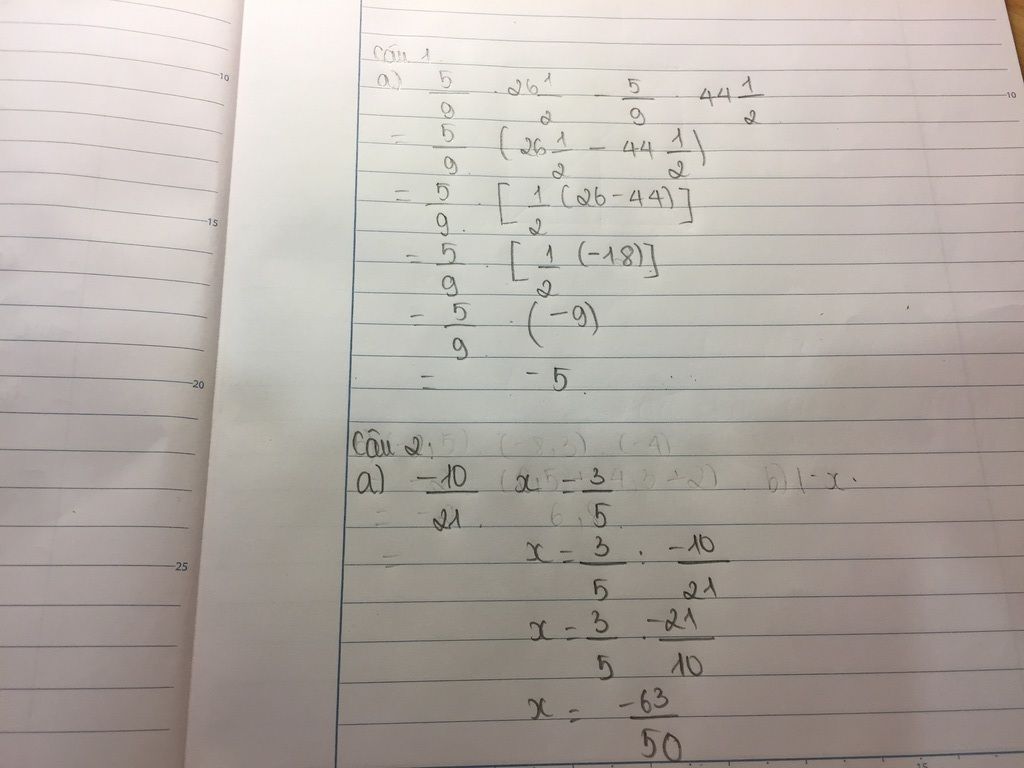 10
15
20
25
Câu 1.
a) 5/9 . 26 1/2 - 5/9 . 44 1/2
= 5/9 (26 1/2 - 44 1/2)
= 5/9 . [1/2 (26 - 44)]
= 5/9 . [1/2 (-18)]
= 5/9 . (-9)
= -5
Câu 2:
a) -10/21 . x = 3/5 b) 1 - x.
x = 3/5 : -10/21
x = 3/5 . -21/10
x = -63/50
10
15